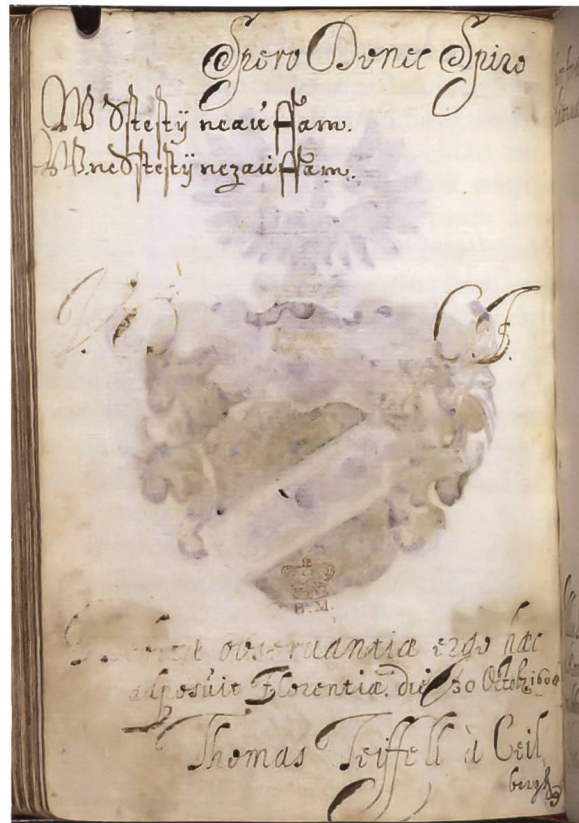 Spero Donec Spiro
W Sstestij neaúffam.
W.neSstestij nezaúffam.
C F.
B. M.
observantiæ ergo hæc
adposúit Florentiæ. die 30 Octob:
Thomas Teÿffell à Ceil
bergk